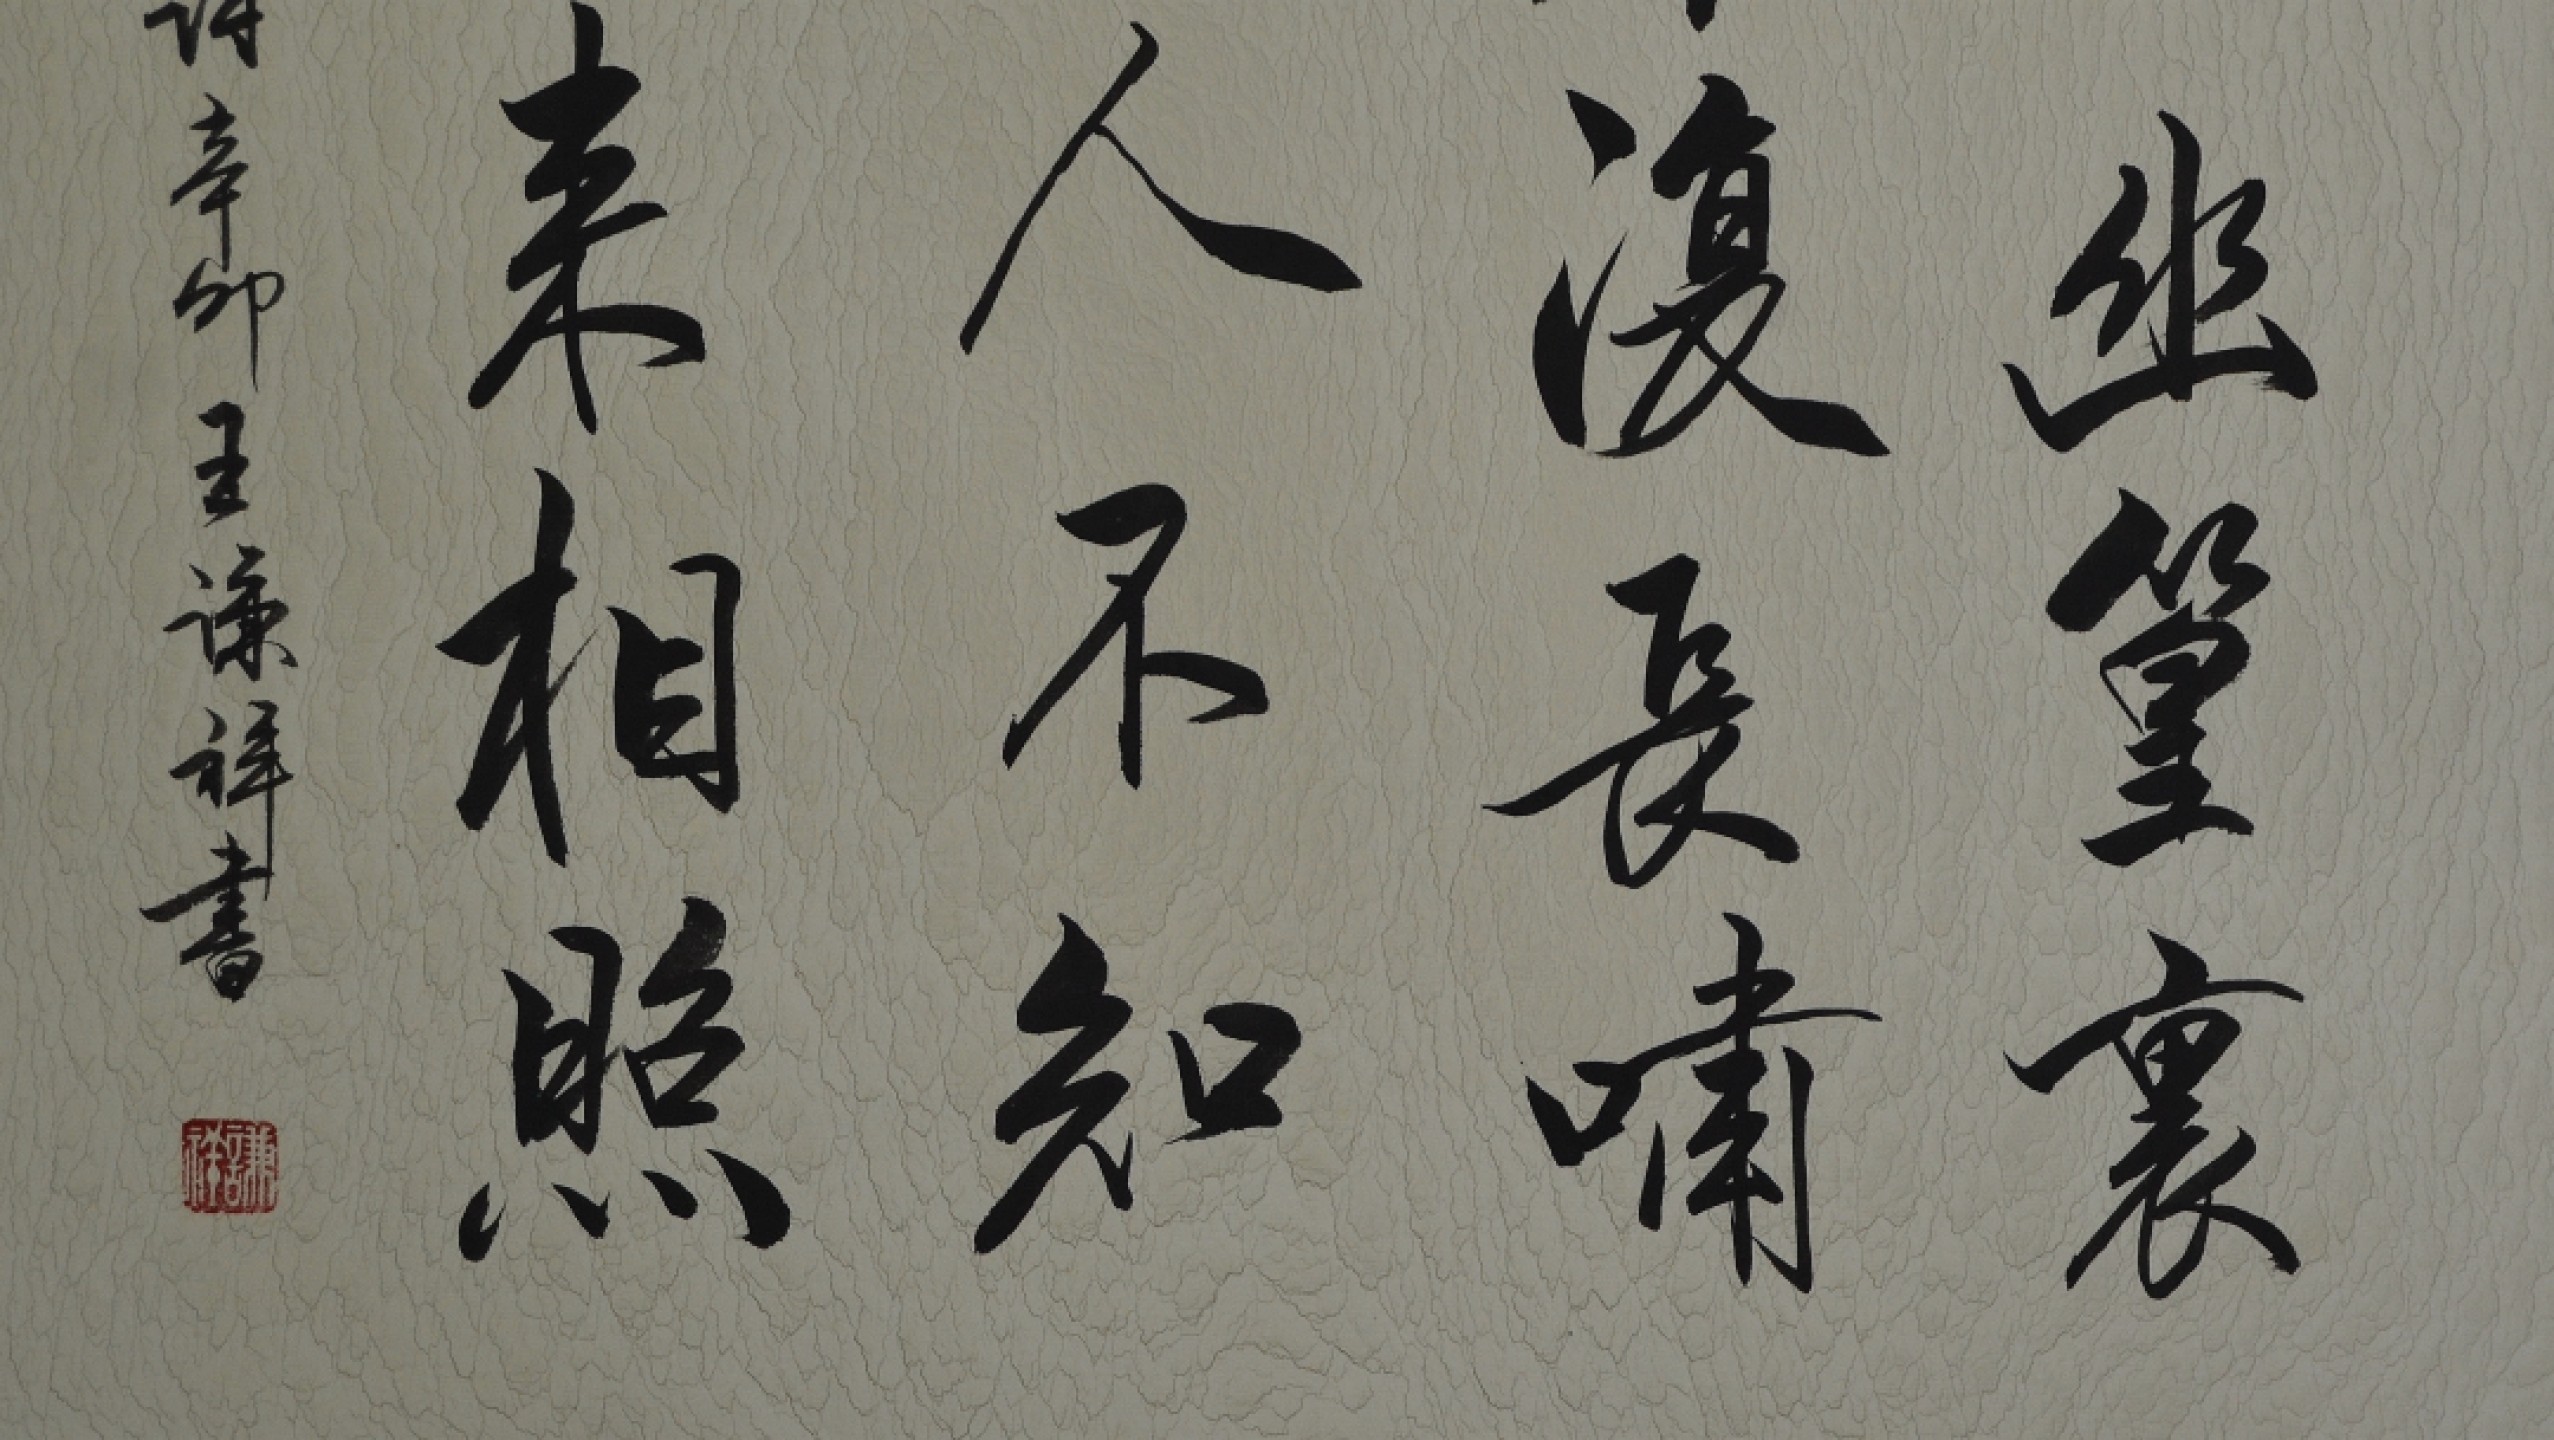 幽篁裏
復長嘯
人不知
来相照
詩辛卯王謙祥書
謙祥